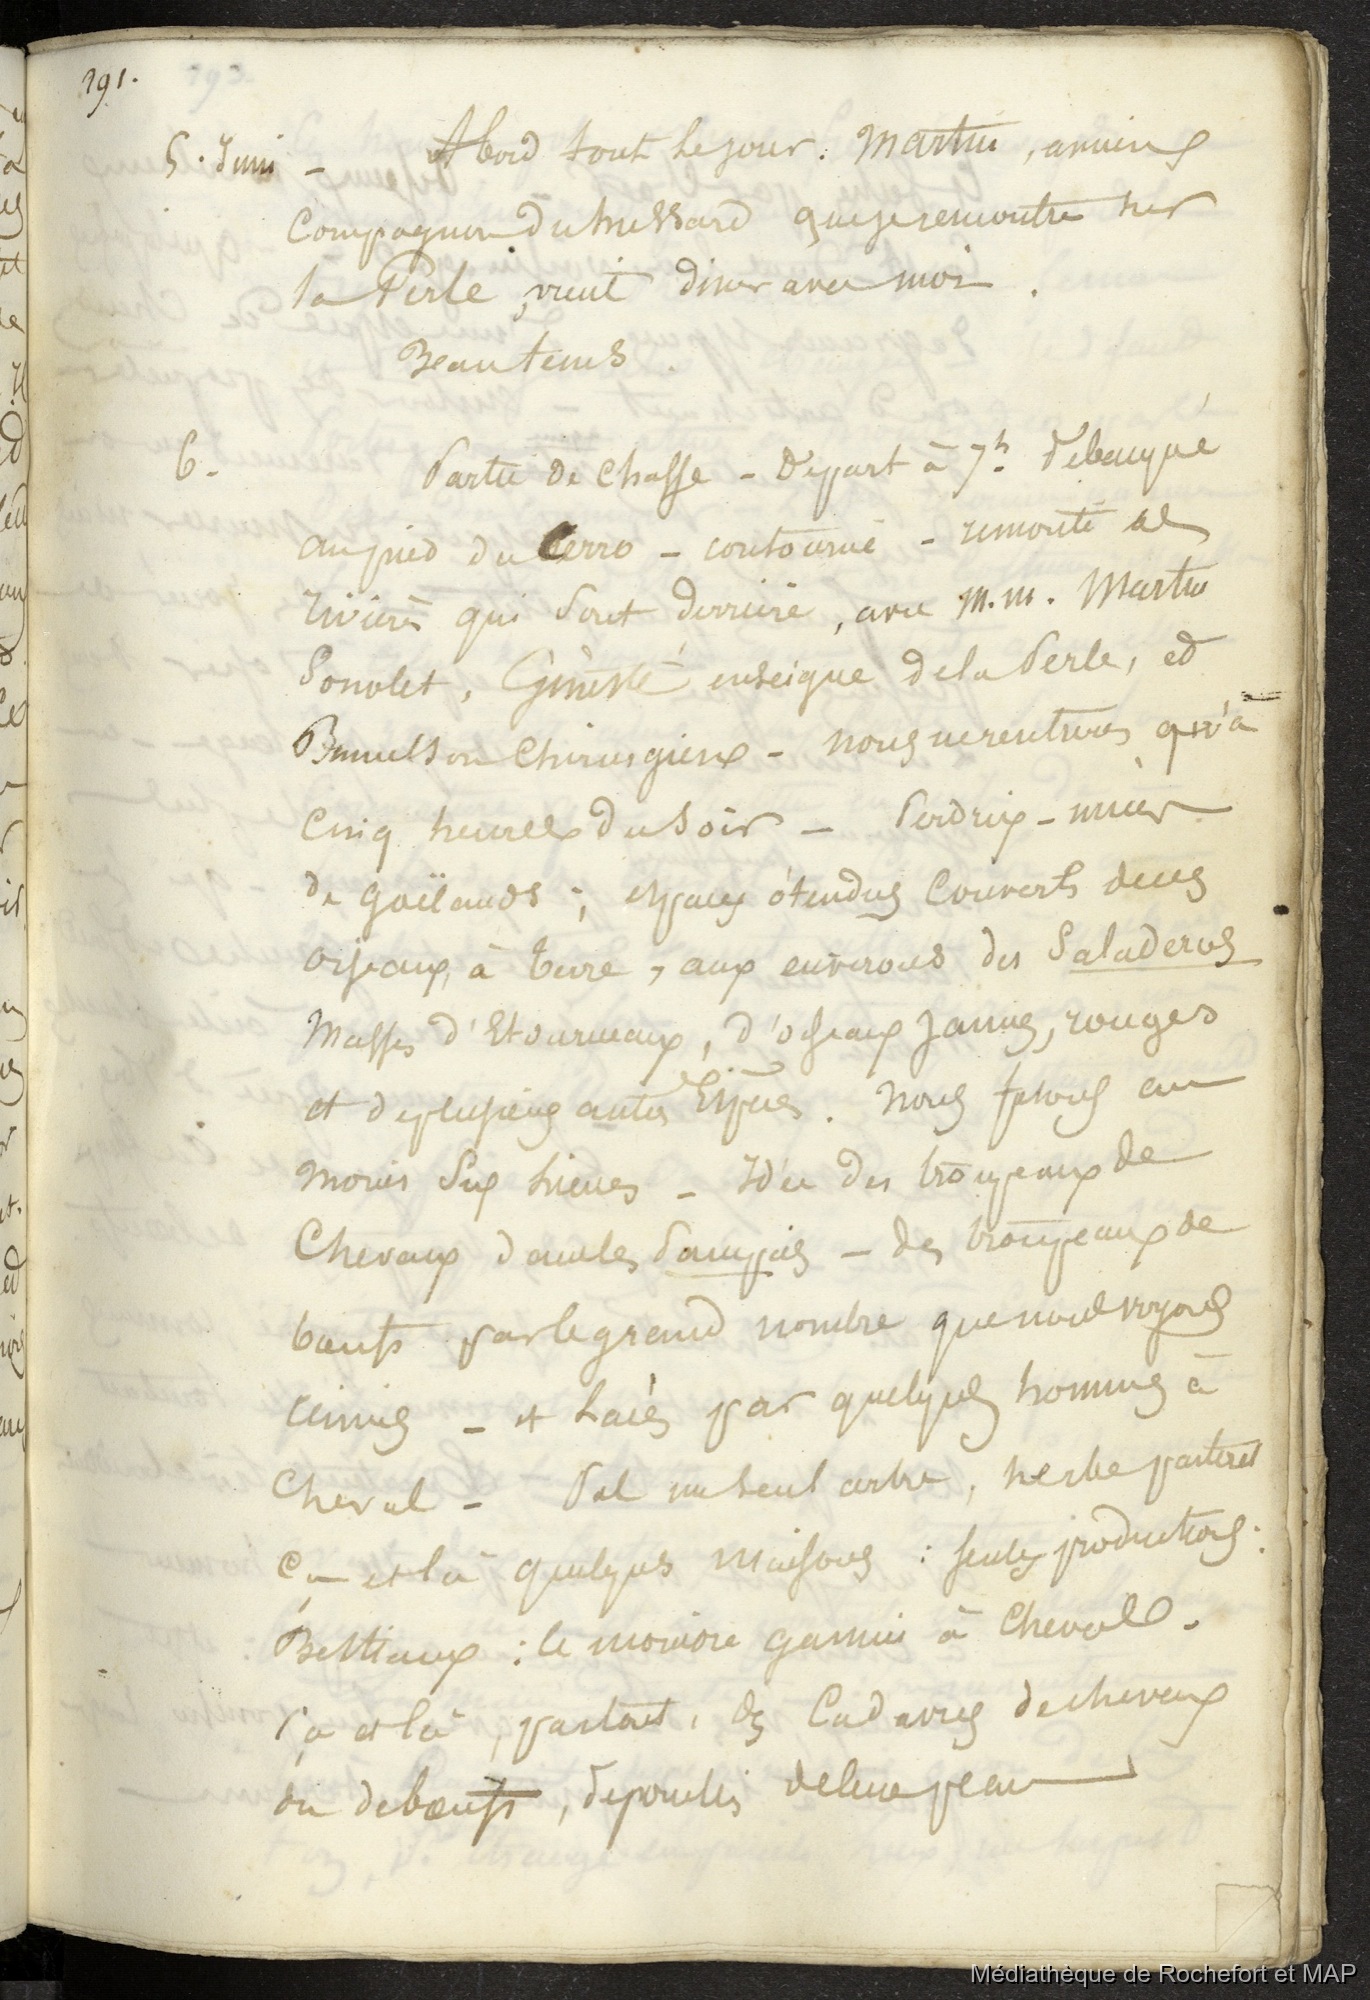 191.
5. Juin - A bord tout le jour. Martin, ancien
Compagnon du hussard que je rencontre sur
la Perle, vient diner avec moi.
Beau tems.
6. - Partie de chasse - Départ à 7h. débarqué
au pied du Cerro - contourné - remonté les
rivières qui sont derrière, avec M.M. Martin
Ponolet, Ginesté enseigne de la Perle, et
chirurgiens - nous ne rentrons qu'à
cinq heures du soir - Perdrix - nuées
de goëlands; espaces étendus couverts de ces
oiseaux, à terre, aux environs des Saladeros
Masses d'Etourneaux, d'oiseaux jaunes, rouges
et de plusieurs autres Espèces. Nous fesons au
moins six lieues - Idée des troupeaux de
Chevaux dans les Pampas - des troupeaux de
bœufs par le grand nombre que nous voyons
réunis - et lacés par quelques hommes à
Cheval - Pas un seul arbre, herbe partout
ça et là quelques maisons : seules productions :
Bestiaux : le moindre gamin à Cheval.
çà et là, partout, des Cadavres de chevaux
ou de bœufs, dépouillés de leur peau
Médiathèque de Rochefort et MAP